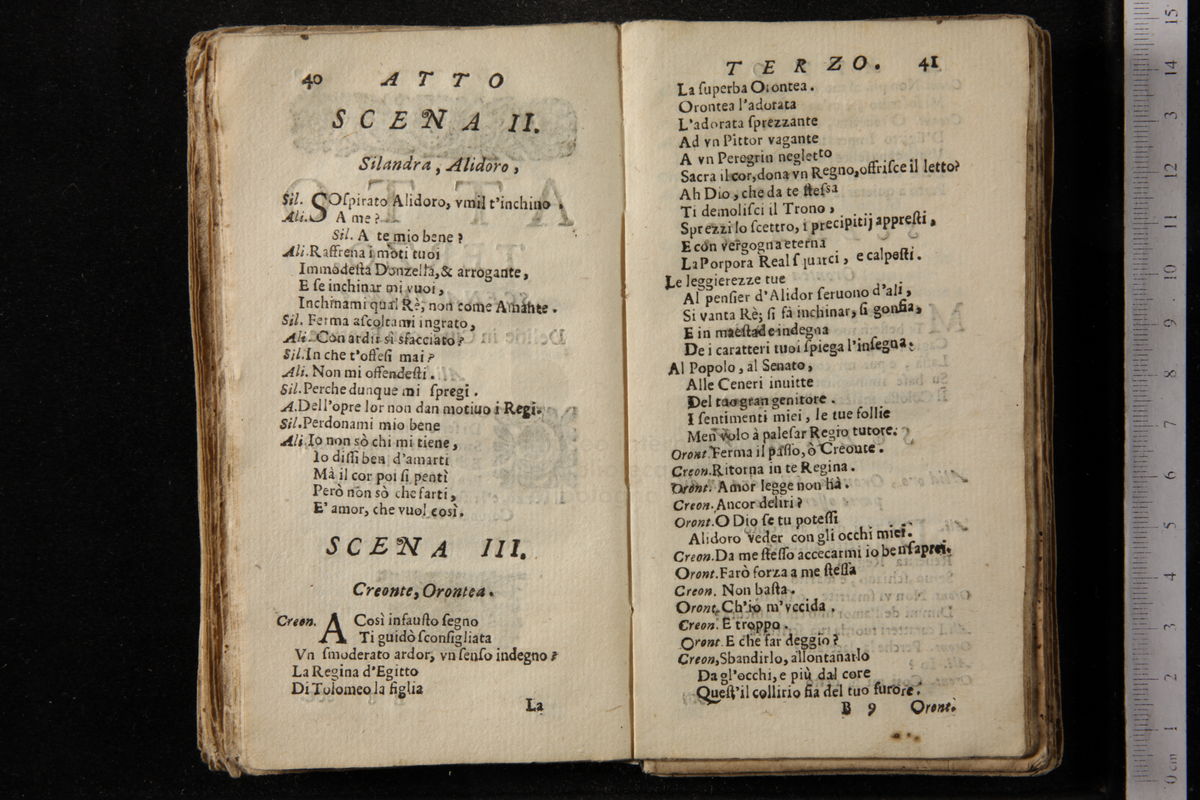 40 ATTO
SCENA II.
Silandra, Alidoro,
Sil. SOſpirato Alidoro, vmil t'inchino.
Ali. A me?
Sil. A te mio bene?
Ali. Raffrena i moti tuoi
Immodeſta Donzella, & arrogante,
E ſe inchinar mi vuoi,
Inchinami qual Rè, non come Amante.
Sil. Ferma aſcoltami ingrato,
Ali. Con ardir sì sfacciato?
Sil. In che t'offeſi mai?
Ali. Non mi offendeſti.
Sil. Perche dunque mi ſpregi.
A. Dell'opre lor non dan motiuo i Regi.
Sil. Perdonami mio bene
Ali. Io non sò chi mi tiene,
Io diſſi ben d'amarti
Mà il cor poi ſi pentì
Però non sò che farti,
E' amor, che vuol così.
SCENA III.
Creonte, Orontea.
Creon. A Così infauſto ſegno
Ti guidò ſconſigliata
Vn ſmoderato ardor, vn ſenſo indegno?
La Regina d'Egitto
Di Tolomeo la figlia
La
TERZO. 41
La ſuperba Orontea.
Orontea l'adorata
L'adorata ſprezzante
Ad vn Pittor vagante
A vn Peregrin negletto
Sacra il cor, dona vn Regno, offriſce il letto?
Ah Dio, che da te ſteſsa
Ti demoliſci il Trono,
Sprezzi lo ſcettro, i precipitij appreſti,
E con vergogna eterna
La Porpora Real ſquarci, e calpeſti.
Le leggierezze tue
Al penſier d'Alidor ſeruono d'ali,
Si vanta Rè; ſi fà inchinar, ſi gonfia,
E in maeſtade indegna
De i caratteri tuoi ſpiega l'inſegna.
Al Popolo, al Senato,
Alle Ceneri inuitte
Del tuo gran genitore.
I ſentimenti miei, le tue follie
Men volo à paleſar Regio tutore.
Oront. Ferma il paſſo, ò Creonte.
Creon. Ritorna in te Regina.
Oront. Amor legge non hà.
Creon. Ancor deliri?
Oront. O Dio ſe tu poteſſi
Alidoro veder con gli occhi miei.
Creon. Da me ſteſſo accecarmi io ben ſaprei.
Oront. Farò forza a me ſteſſa
Creon. Non baſta.
Oront. Ch'io m'vccida.
Creon. E troppo.
Oront. E che far deggio?
Creon, Sbandirlo, allontanarlo
Da gl'occhi, e più dal core
Queſt'il collirio ſia del tuo furore.
B 9 Oront.
15
14
13
12
11
10
9
8
7
6
5
4
3
2
1
0 cm